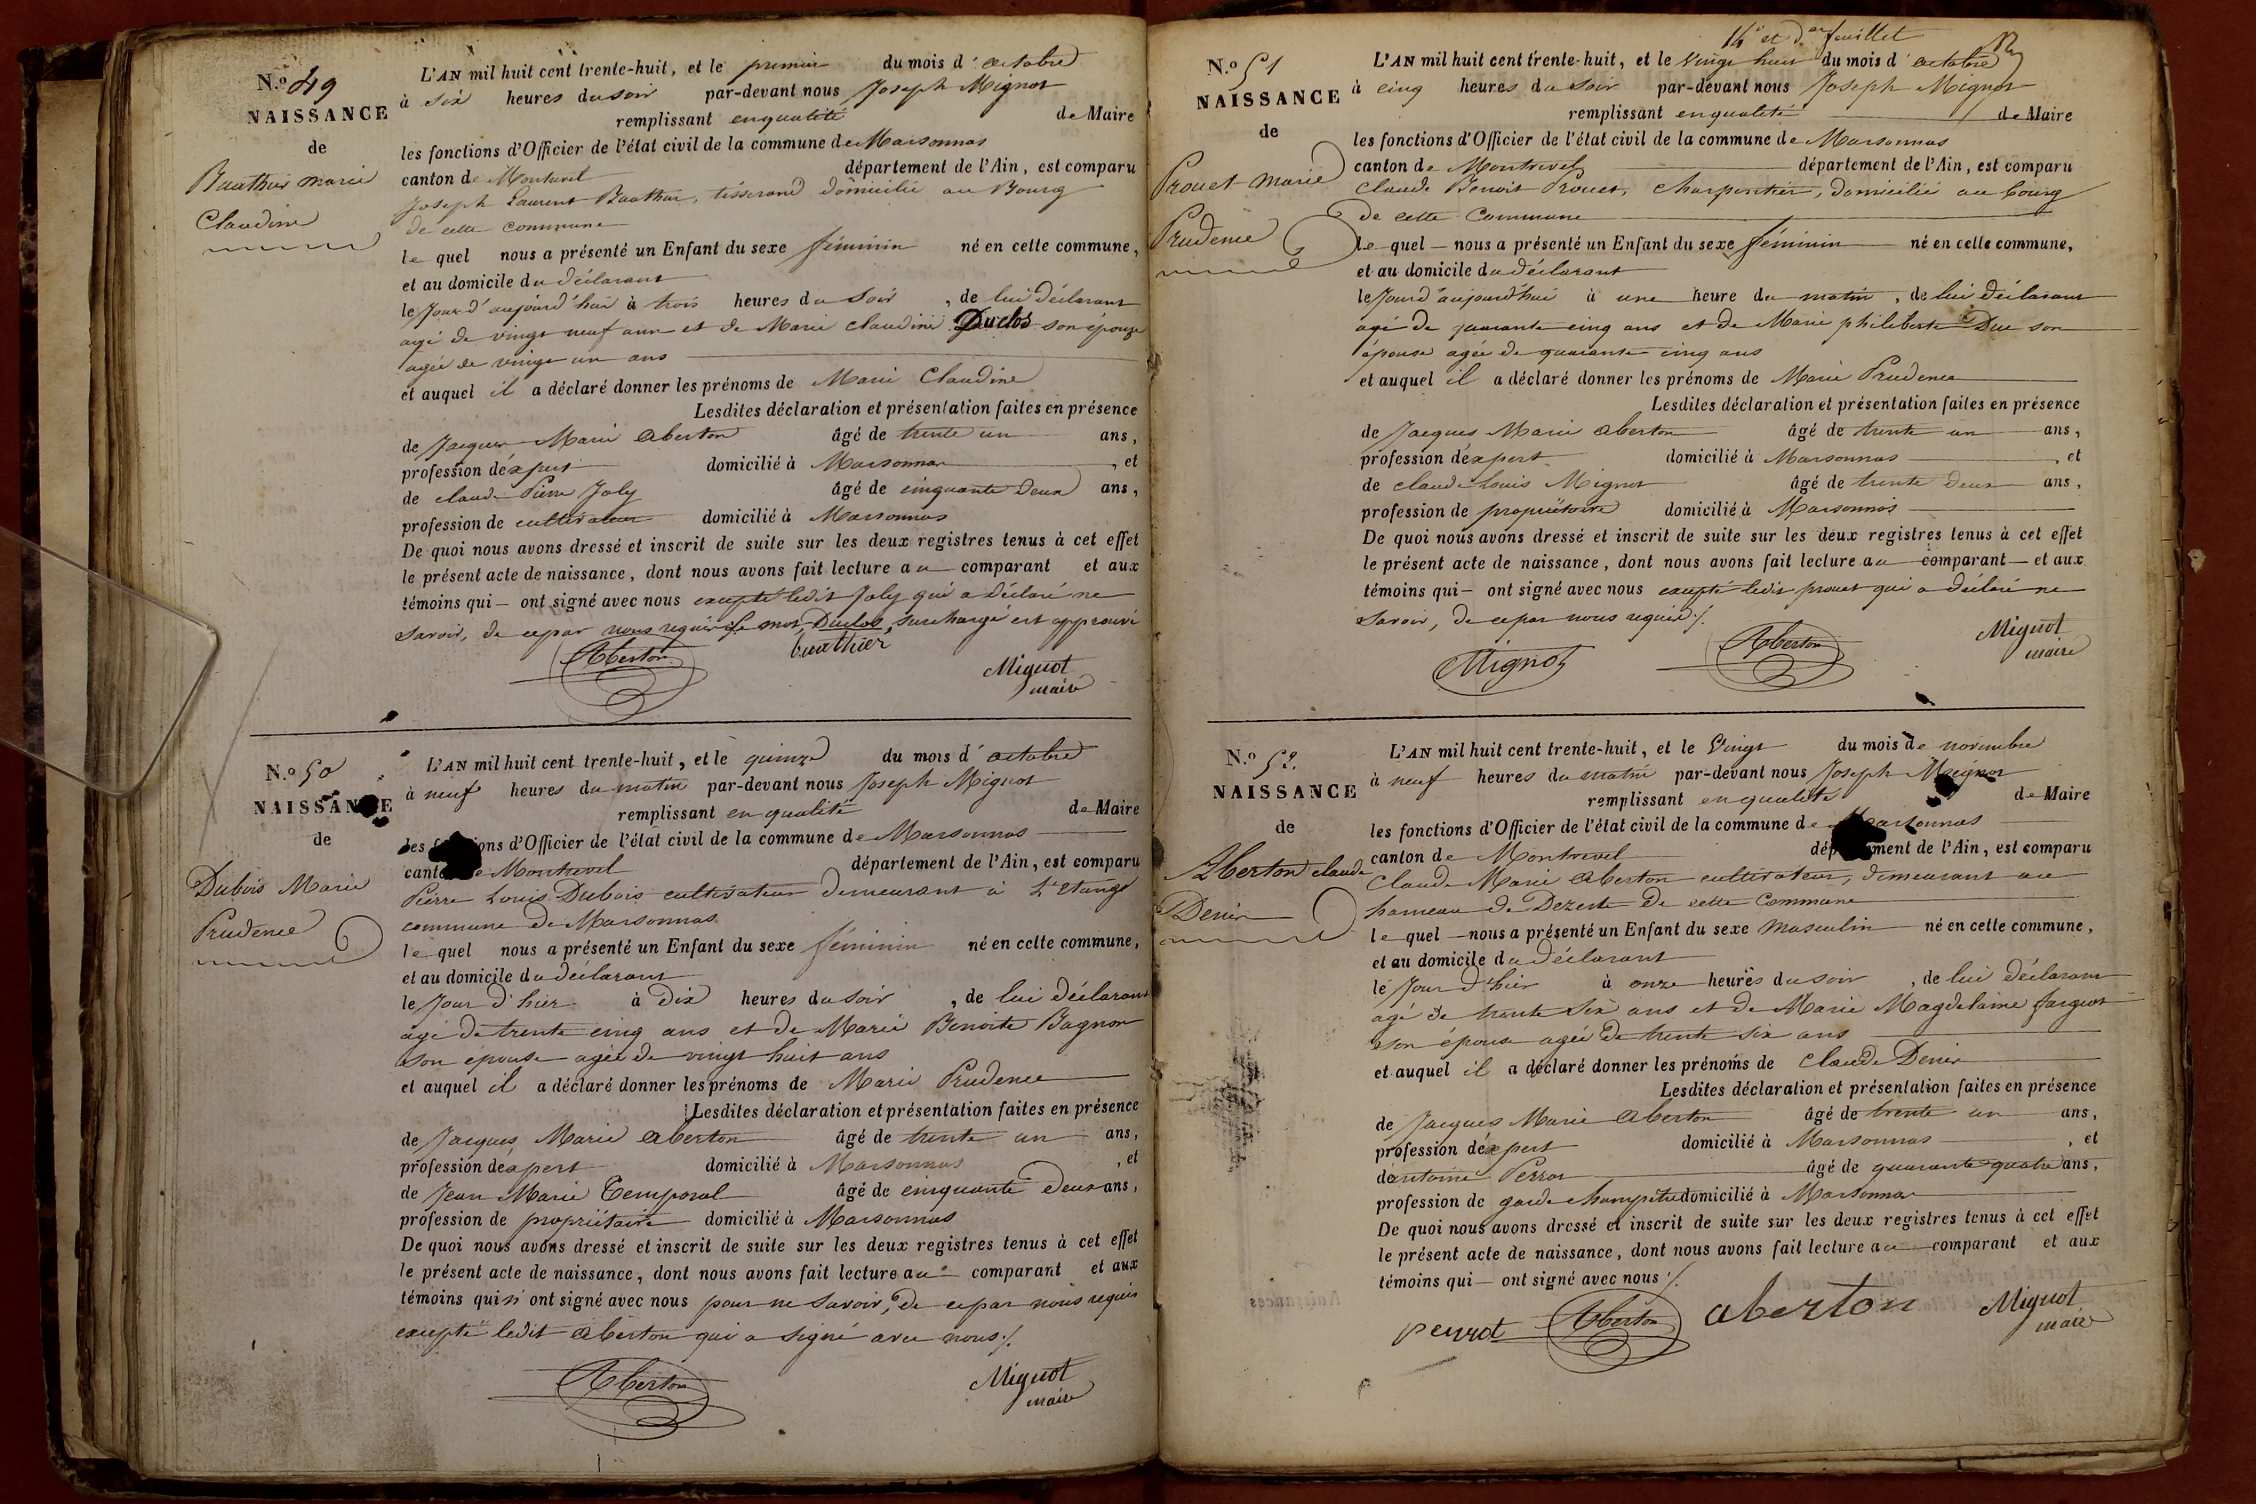 N.o 49
NAISSANCE
de
Buathier marie
Claudine
L'AN mil huit cent trente-huit, et le premier du mois d'octobre
à six heures du soir par-devant nous Joseph Mignot
remplissant en qualité de Maire
les fonctions d'Officier de l'état civil de la commune de Marsonnas
canton de Montrevel département de l'Ain, est comparu
Joseph Laurent Buathier, tisserand domicilié au Bourg
de cette commune
le quel nous a présenté un Enfant du sexe féminin né en cette commune,
et au domicile du déclarant
le Jour d'aujourd'hui à trois heures du soir, de lui déclarant
agé de vingt neuf ans et de Marie claudine Duclos son épouse
agée de vingt un ans
et auquel il a déclaré donner les prénoms de Marie Claudine
Lesdites déclaration et présentation faites en présence
de Jacques Marie Aberton âgé de trente un ans,
profession d'éxpert domicilié à Marsonnas, et
de claude Pierre Joly âgé de cinquante deux ans,
profession de cultivateur domicilié à Marsonnas
De quoi nous avons dressé et inscrit de suite sur les deux registres tenus à cet effet
le présent acte de naissance, dont nous avons fait lecture au comparant et aux
témoins qui — ont signé avec nous excepté ledit Joly qui a déclaré ne
savoir, de ce par nous requis le mot, Duclos, surchargé est approuvé
Aberton buathier Mignot
maire
N.o 50
NAISSANCE
de
Dubois Marie
Prudence
L'AN mil huit cent trente-huit, et le quinze du mois d'octobre
à neuf heures du matin par-devant nous Joseph Mignot
remplissant en qualité de Maire
les fonctions d'Officier de l'état civil de la commune de Marsonnas
canton de Montrevel département de l'Ain, est comparu
Pierre Louis Dubois cultivateur demeurant à L'etange
commune de Marsonnas
le quel nous a présenté un Enfant du sexe féminin né en cette commune,
et au domicile du déclarant
le Jour d'hier à dix heures du soir, de lui déclarant
agé de trente cinq ans et de Marie Benoite Bagnon
son epouse agée de vingt huit ans
et auquel il a déclaré donner les prénoms de Marie Prudence
Lesdites déclaration et présentation faites en présence
de Jacques Marie Aberton âgé de trente un ans,
profession d'éxpert domicilié à Marsonnas, et
de Jean Marie Temporal âgé de cinquante deux ans,
profession de propriétaire domicilié à Marsonnas
De quoi nous avons dressé et inscrit de suite sur les deux registres tenus à cet effet
le présent acte de naissance, dont nous avons fait lecture au comparant et aux
témoins qui n'ont signé avec nous pour ne savoir, de ce par nous requis
excepté ledit Aberton qui a signé avec nous ./.
Aberton Mignot
maire
14e et der feuillet
N.o 51
NAISSANCE
de
Prouet Marie
Prudence
L'AN mil huit cent trente-huit, et le Vingt huit du mois d'octobre
à cinq heures du soir par-devant nous Joseph Mignot
remplissant en qualité de Maire
les fonctions d'Officier de l'état civil de la commune de Marsonnas
canton de Montrevel département de l'Ain, est comparu
Claude Benoit Prouet, charpentier, domicilié au bourg
de cette Commune
le quel — nous a présenté un Enfant du sexe féminin né en cette commune,
et au domicile du déclarant
le Jour d'aujourd'hui à une heure du matin, de lui déclarant
agé de quarante cinq ans et de Marie philiberte Duc son
épouse agée de quarante cinq ans
et auquel il a déclaré donner les prénoms de Marie Prudence
Lesdites déclaration et présentation faites en présence
de Jacques Marie Aberton âgé de trente un ans,
profession d'éxpert domicilié à Marsonnas, et
de claude Louis Mignot âgé de trente deux ans,
profession de propriétaire domicilié à Marsonnas
De quoi nous avons dressé et inscrit de suite sur les deux registres tenus à cet effet
le présent acte de naissance, dont nous avons fait lecture au comparant — et aux
témoins qui — ont signé avec nous excepté ledit prouet qui a déclaré ne
savoir, de ce par nous requis ./.
Mignot Aberton Mignot
maire
N.o 52.
NAISSANCE
de
Aberton claude
Denis
L'AN mil huit cent trente-huit, et le Vingt du mois de novembre
à neuf heures du matin par-devant nous Joseph Mignot
remplissant en qualité de Maire
les fonctions d'Officier de l'état civil de la commune de Marsonnas
canton de Montrevel département de l'Ain, est comparu
Claude Marie Aberton cultivateur, demeurant au
hameau de Dezerte de cette Commune
le quel — nous a présenté un Enfant du sexe masculin né en cette commune,
et au domicile du déclarant
le Jour d'hier à onze heures du soir, de lui déclarant
agé de trente six ans et de Marie Magdelaine Jarquet
son épouse agée de trente six ans
et auquel il a déclaré donner les prénoms de Claude Denis
Lesdites déclaration et présentation faites en présence
de Jacques Marie Aberton âgé de trente un ans,
profession d'éxpert domicilié à Marsonnas, et
d'antoine Perrot âgé de quarante quatre ans,
profession de garde champêtre domicilié à Marsonnas
De quoi nous avons dressé et inscrit de suite sur les deux registres tenus à cet effet
le présent acte de naissance, dont nous avons fait lecture au comparant et aux
témoins qui — ont signé avec nous ./.
perrot Aberton aberton Mignot
maire